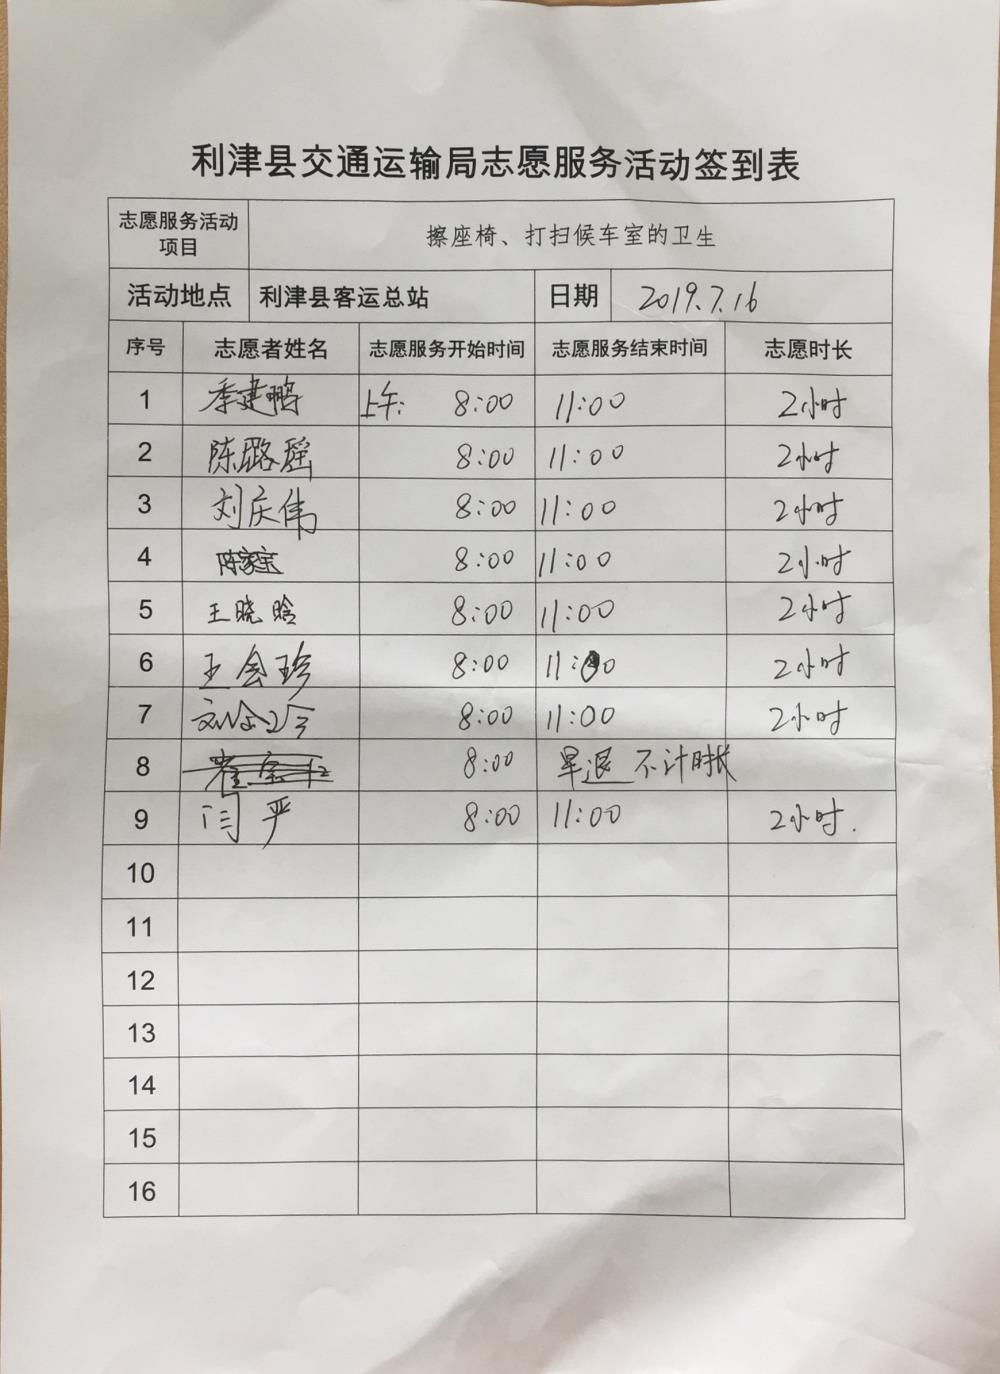 利津县交通运输局志愿服务活动签到表
志愿服务活动项目 擦座椅、打扫候车室的卫生
活动地点 利津县客运总站 日期 2019.7.16
序号 志愿者姓名 志愿服务开始时间 志愿服务结束时间 志愿时长
1 季建鹏 上午: 8:00 11:00 2小时
2 陈璐瑶 8:00 11:00 2小时
3 刘庆伟 8:00 11:00 2小时
4 陈家宝 8:00 11:00 2小时
5 王晓晗 8:00 11:00 2小时
6 王会珍 8:00 11:00 2小时
7 8:00 11:00 2小时
8 8:00 早退 不计时长
9 闫严 8:00 11:00 2小时.
10
11
12
13
14
15
16